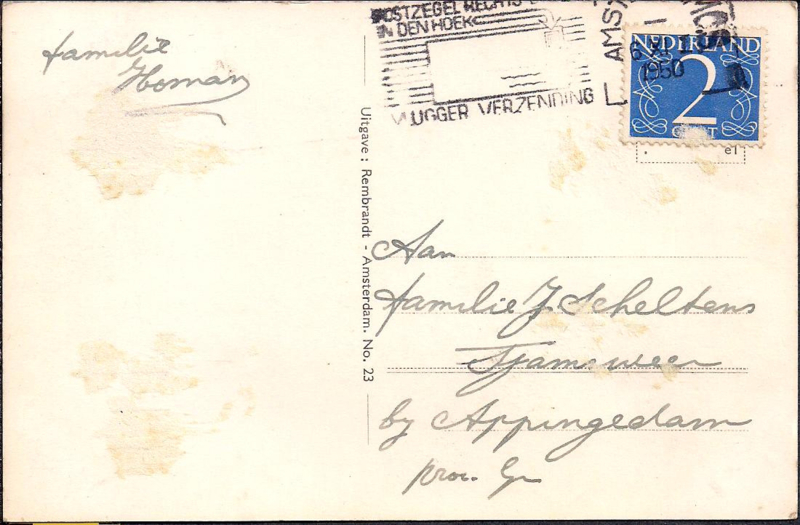 Familie
Homan
POSTZEGEL RECHTS
IN DEN HOEK
VLUGGER VERZENDING
AMST
1950
NEDERLAND
2
CENT
el
Uitgave: Rembrandt - Amsterdam. No. 23
Aan
Familie J. Scheltens
Tjamsweer
by Appingedam
prov. Gr